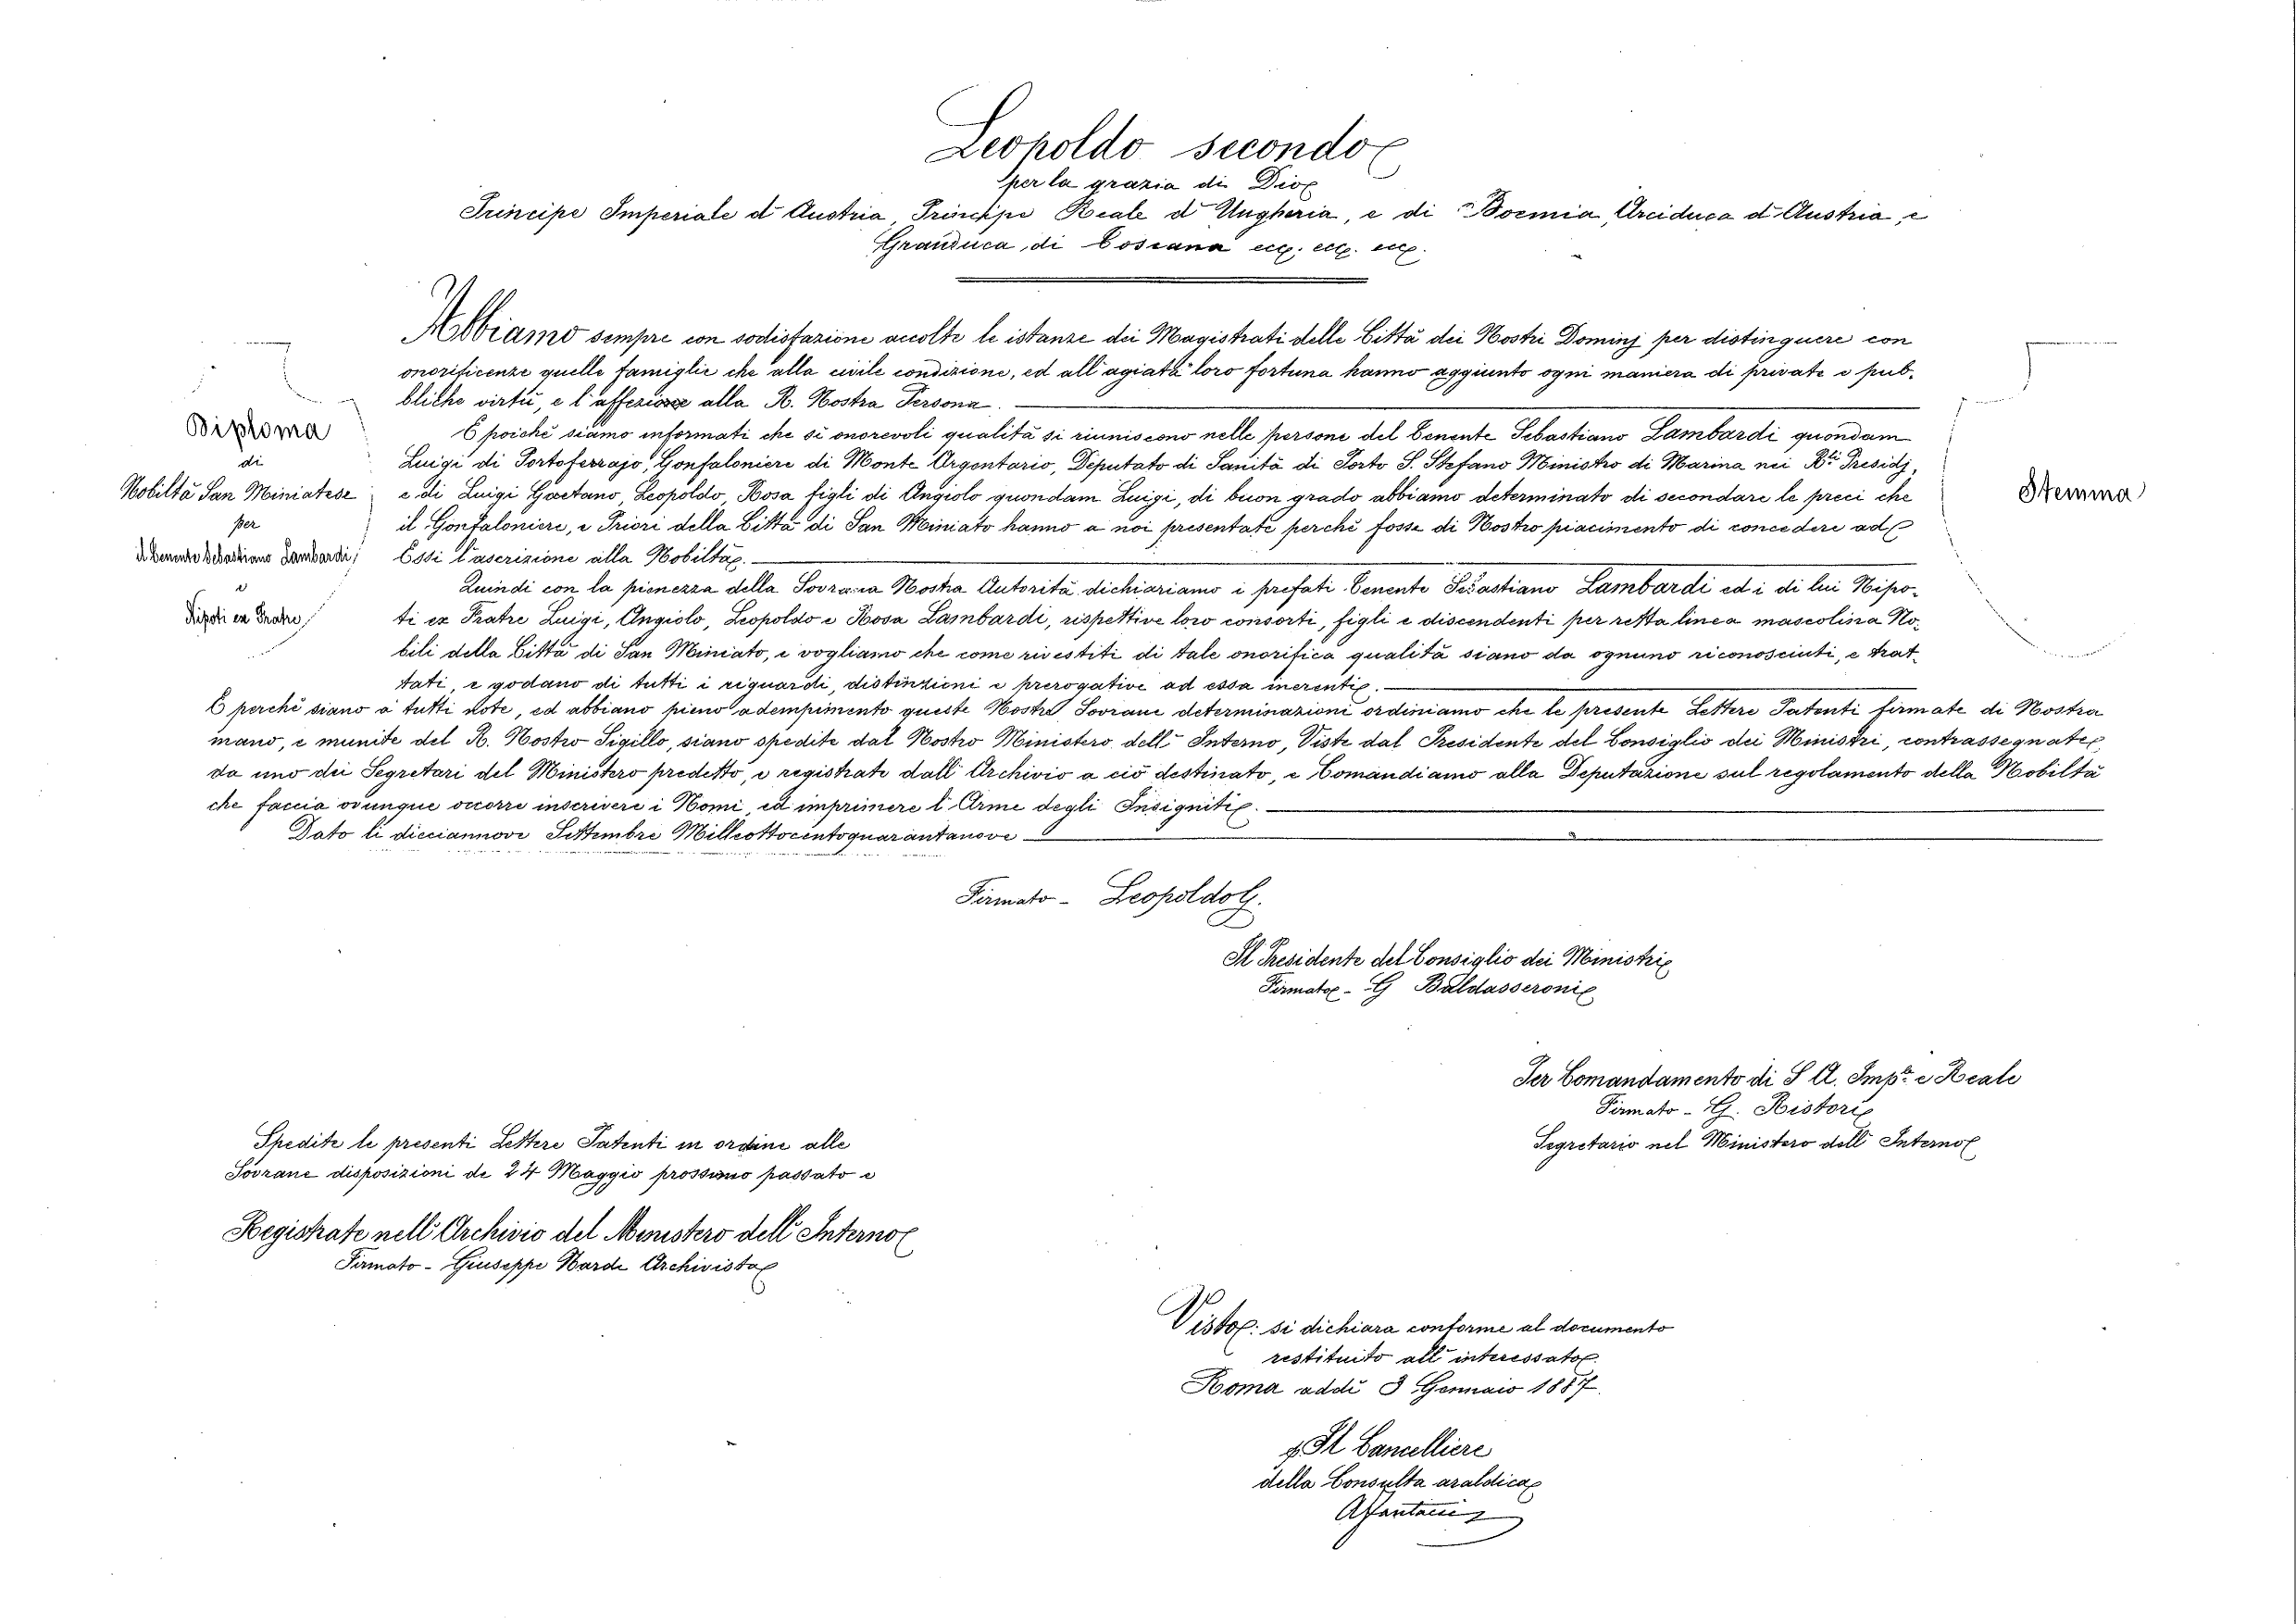 Leopoldo secondo
per la grazia di Dio
Principe Imperiale d'Austria, Principe Reale d'Ungheria, e di Boemia, Arciduca d'Austria, e
Granduca di Toscana ecc. ecc. ecc.
Abbiamo sempre con sodisfazione accolte le istanze dei Magistrati delle Città dei Nostri Dominj per distinguere con
onorificenze quelle famiglie che alla civile condizione, ed all'agiata loro fortuna hanno aggiunto ogni maniera di private e pub-
bliche virtù, e l'affezione alla R. Nostra Persona.
E poichè siamo informati che sì onorevoli qualità si riuniscono nelle persone del Tenente Sebastiano Lambardi quondam
Luigi di Portoferrajo, Gonfaloniere di Monte Argentario, Deputato di Sanità di Porto S. Stefano Ministro di Marina nei Rli Presidj,
e di Luigi Gaetano, Leopoldo, Rosa figli di Angiolo quondam Luigi, di buon grado abbiamo determinato di secondare le preci che
il Gonfaloniere, e Priori della Città di San Miniato hanno a noi presentate perchè fosse di Nostro piacimento di concedere ad
Essi l'ascrizione alla Nobiltà.
Quindi con la pienezza della Sovrana Nostra Autorità dichiariamo i prefati Tenente Sebastiano Lambardi ed i di lui Nipo-
ti ex Fratre Luigi, Angiolo, Leopoldo e Rosa Lambardi, rispettive loro consorti, figli e discendenti per retta linea mascolina No-
bili della Città di San Miniato, e vogliamo che come rivestiti di tale onorifica qualità siano da ognuno riconosciuti, e trat-
tati, e godano di tutti i riguardi, distinzioni e prerogative ad essa inerenti.
E perchè siano a tutti note, ed abbiano pieno adempimento queste Nostre Sovrane determinazioni ordiniamo che le presente Lettere Patenti firmate di Nostra
mano, e munite del R. Nostro Sigillo, siano spedite dal Nostro Ministero dell'Interno, Viste dal Presidente del Consiglio dei Ministri, contrassegnate
da uno dei Segretari del Ministero predetto, e registrate dall'Archivio a ciò destinato, e Comandiamo alla Deputazione sul regolamento della Nobiltà
che faccia ovunque occorre inscrivere i Nomi, ed imprimere l'Arme degli Insigniti.
Dato li dieciannove Settembre Milleottocentoquarantanove
Diploma
di
Nobiltà San Miniatese
per
il Tenente Sebastiano Lambardi,
e
Nipoti ex Fratre
Stemma
Firmato - Leopoldo
Il Presidente del Consiglio dei Ministri
Firmato - G Baldasseroni
Per Comandamento di S. A. Imple e Reale
Firmato - G. Ristori
Segretario nel Ministero dell'Interno
Spedite le presenti Lettere Patenti in ordine alle
Sovrane disposizioni de 24 Maggio prossimo passato e
Registrate nell'Archivio del Ministero dell'Interno
Firmato - Giuseppe Nardi Archivista
Visto: si dichiara conforme al documento
restituito all'interessato
Roma addì 3 Gennaio 1887.
Il Cancelliere
della Consulta araldica